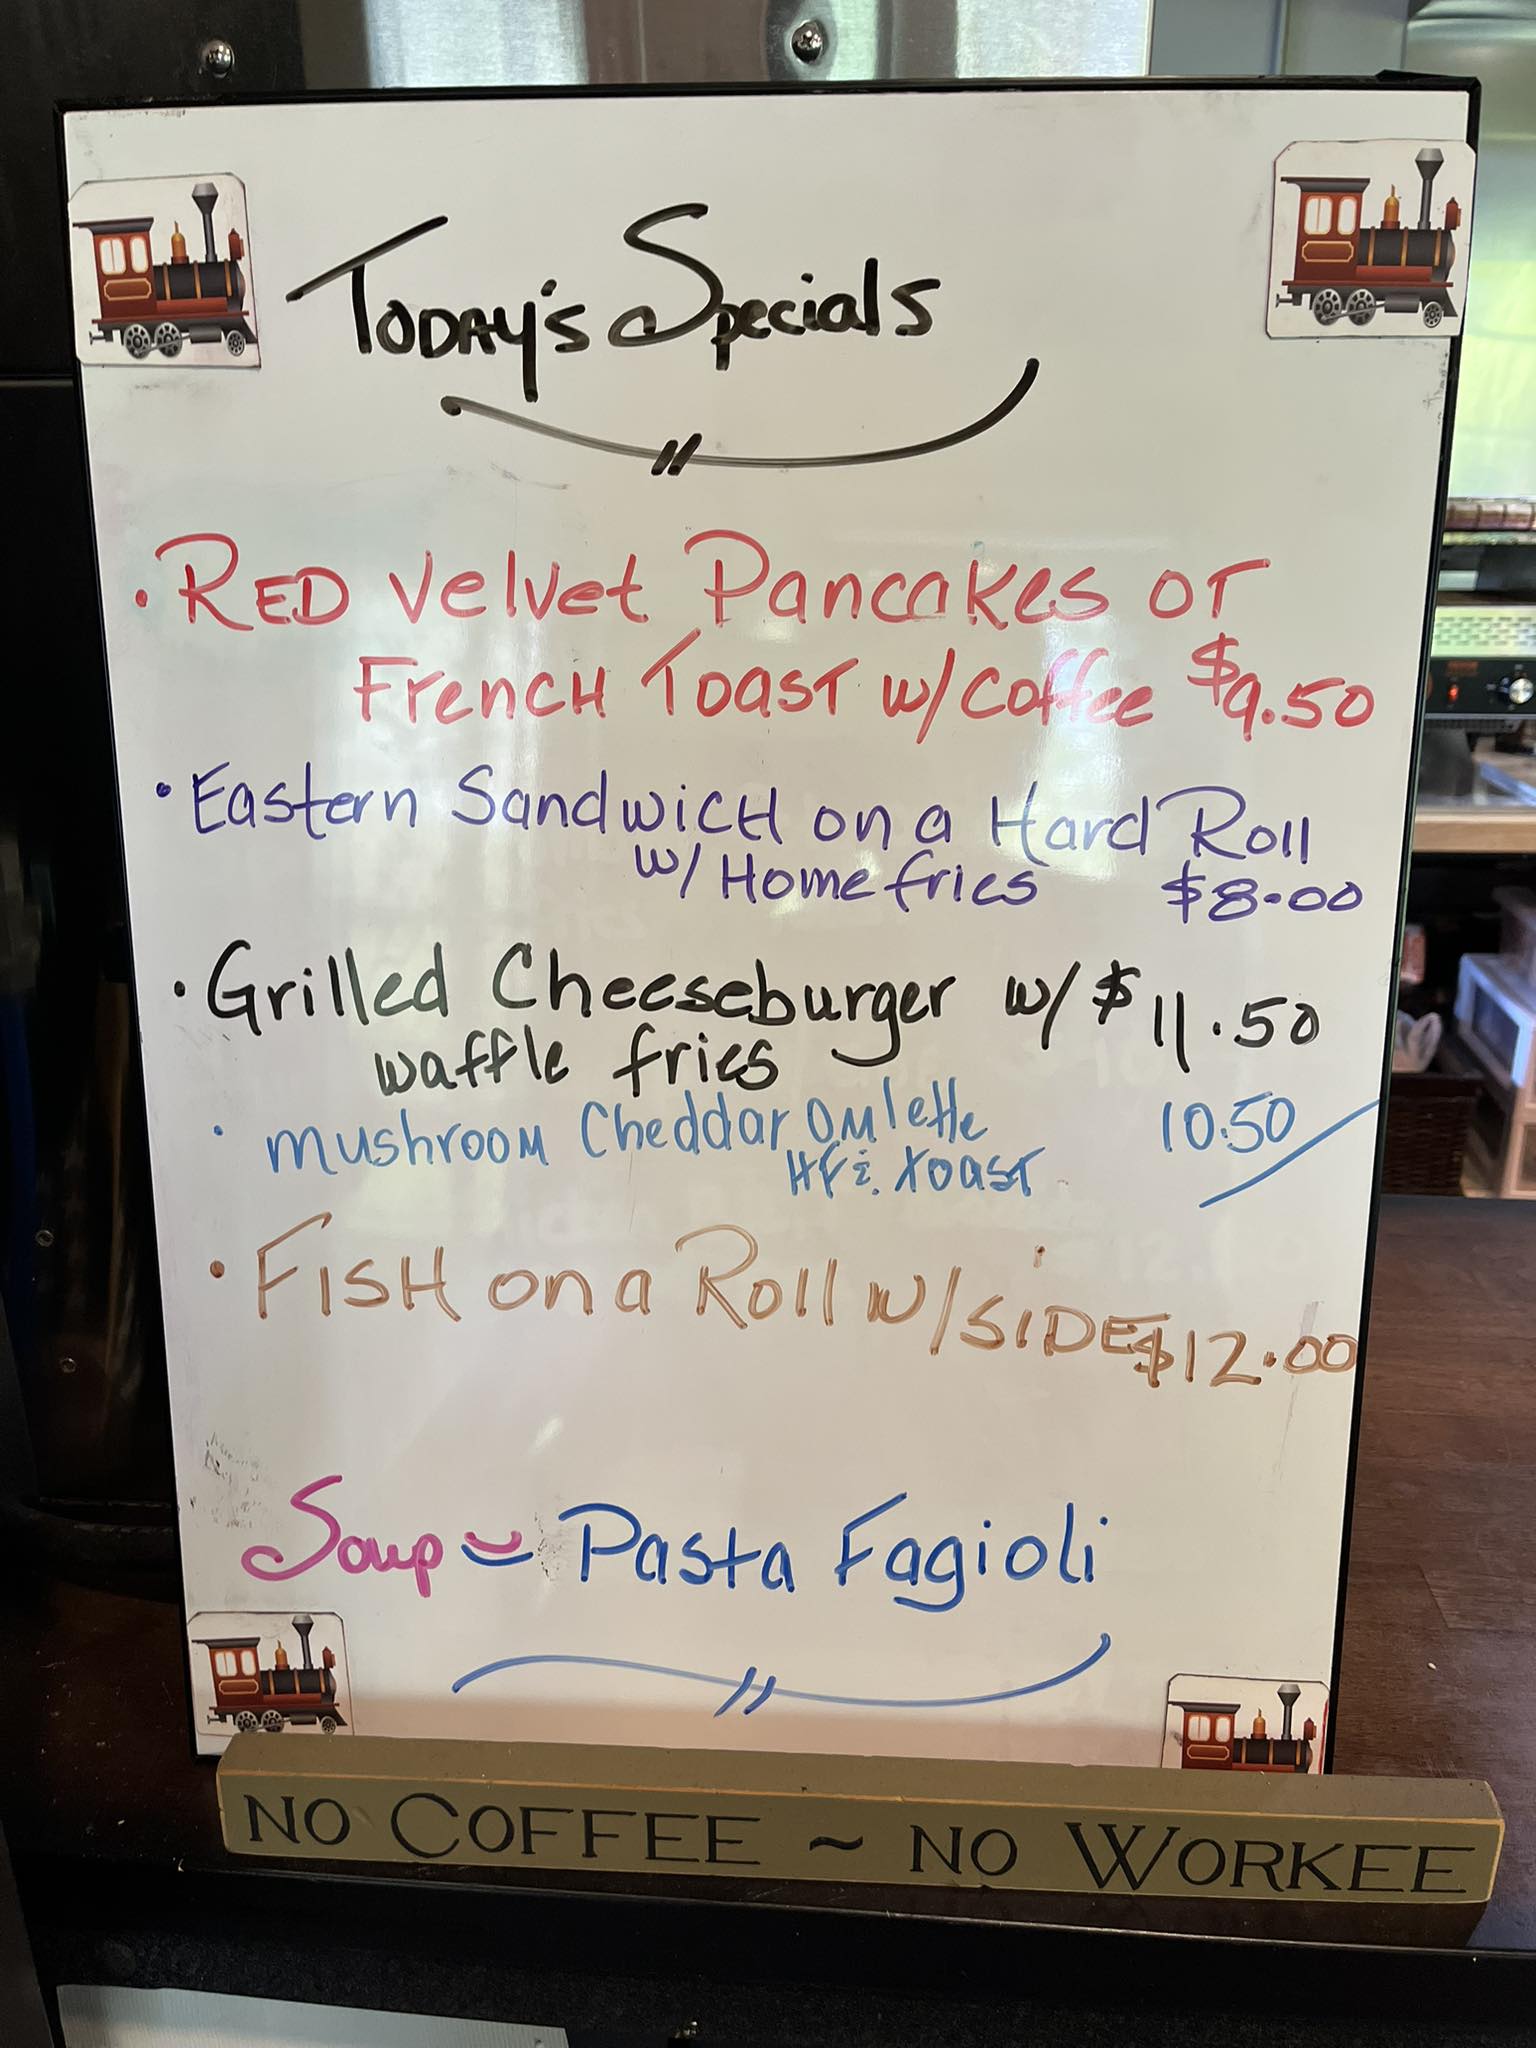 Today's Specials
• Red Velvet Pancakes or
French Toast w/ Coffee $9.50
• Eastern Sandwich on a Hard Roll
w/ Home fries $8.00
• Grilled Cheeseburger w/ $11.50
waffle fries
• Mushroom Cheddar Omlette 10.50
HF & toast
• Fish on a Roll w/ SIDE $12.00
Soup - Pasta Fagioli
NO COFFEE ~ NO WORKEE